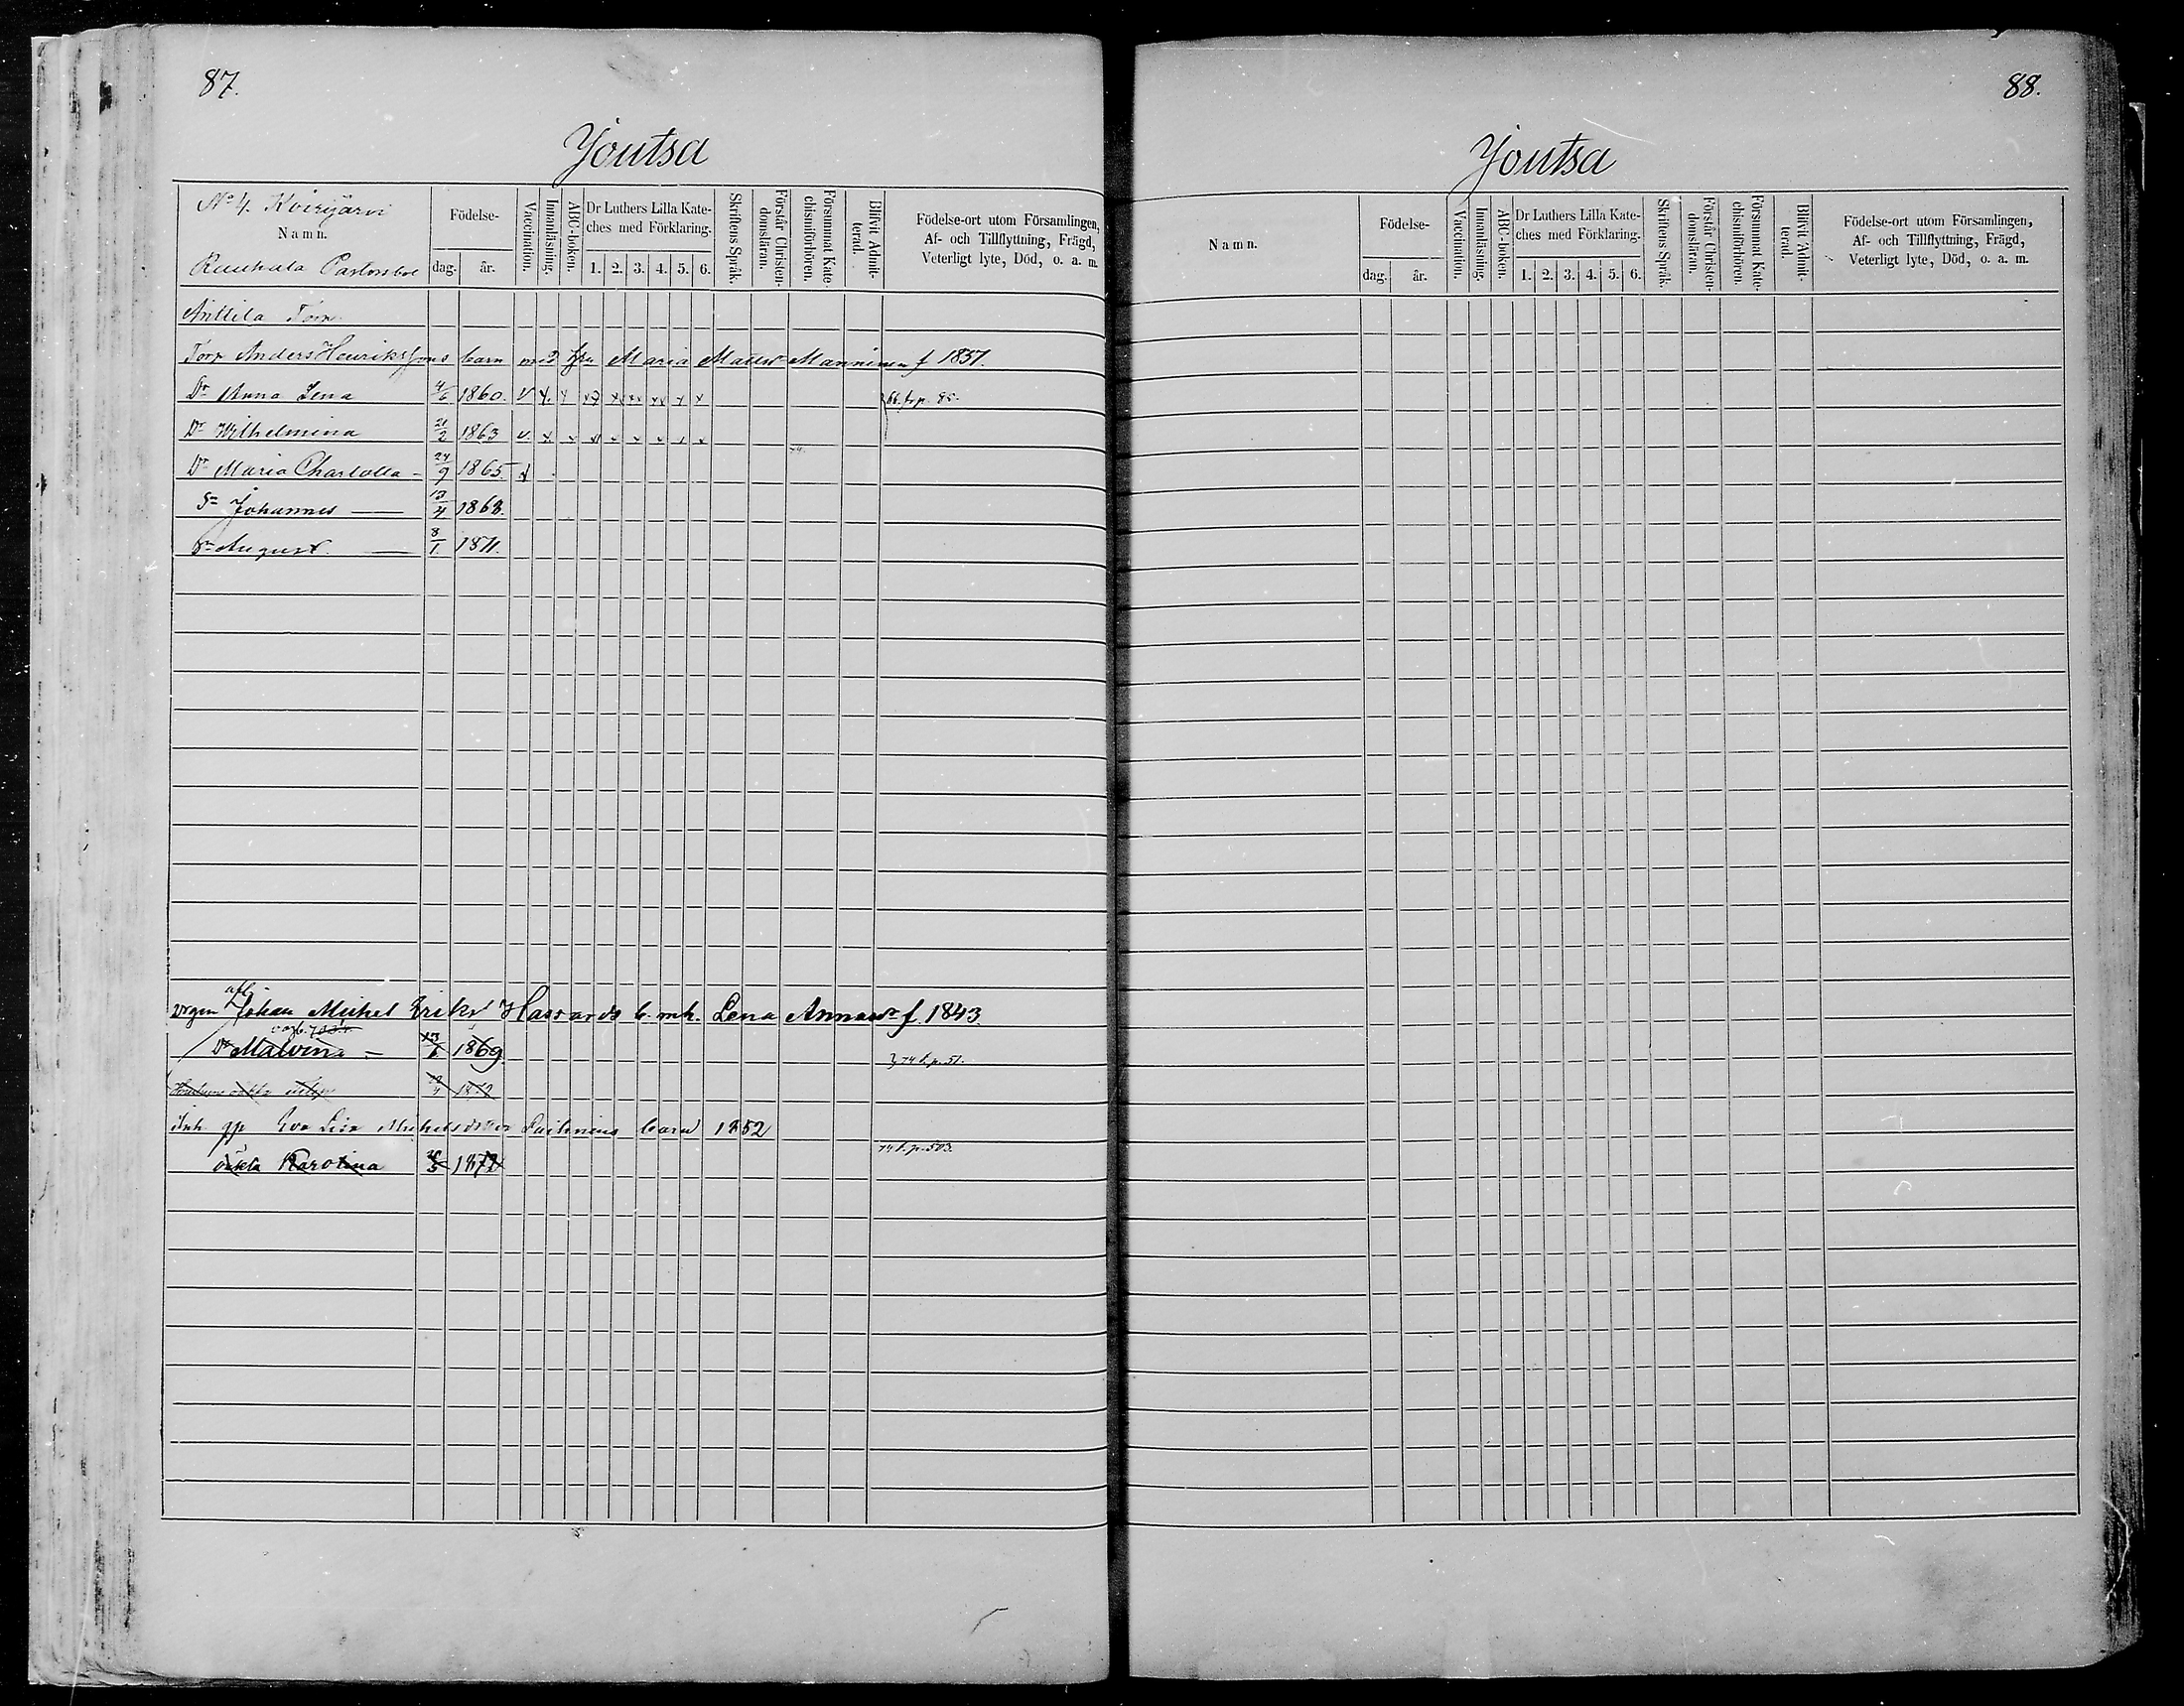 87.
Joutsa
No 4. Kvirijärvi
Namn.
Rauhala Pastorsbol
Födelse-
dag. år.
Vaccination.
Innanläsning.
ABC-boken.
Dr Luthers Lilla Kate-
ches med Förklaring.
1. 2. 3. 4. 5. 6.
Skriftens Språk.
Förstår Christen-
domsläran.
Försummat Kate-
chismiförhören.
Blifvit Admit-
terad.
Födelse-ort utom Församlingen,
Af- och Tillflyttning, Frägd,
Veterligt lyte, Död, o. a. m.
Anttila Torp
Torp Anders Henrikssons barn med Maria Manninen f 1837.
Dr Anna Lena 4/6 1860. v x. x x x x x x x 66. f. p. 85.
Dr Wilhelmina 21/2 1863 v. x
Dr Maria Charlotta - 24/9 1865.
74.
Sn Johannes — 13/4 1868.
Sn August. — 8/1 1871.
Johan Michel Eriks b. mh. Lena Annasdr f. 1843.
Dr Malvina - 6 1869.
74 f. p. 51.
4 1872
Inh pp Eva Lisa barn 1852
74 f. p. 503.
oäkta Karolina 5 1872
88.
Joutsa
Namn.
Födelse-
dag. år.
Vaccination.
Innanläsning.
ABC-boken.
Dr Luthers Lilla Kate-
ches med Förklaring.
1. 2. 3. 4. 5. 6.
Skriftens Språk.
Förstår Christen-
domsläran.
Försummat Kate-
chismiförhören.
Blifvit Admit-
terad.
Födelse-ort utom Församlingen,
Af- och Tillflyttning, Frägd,
Veterligt lyte, Död, o. a. m.